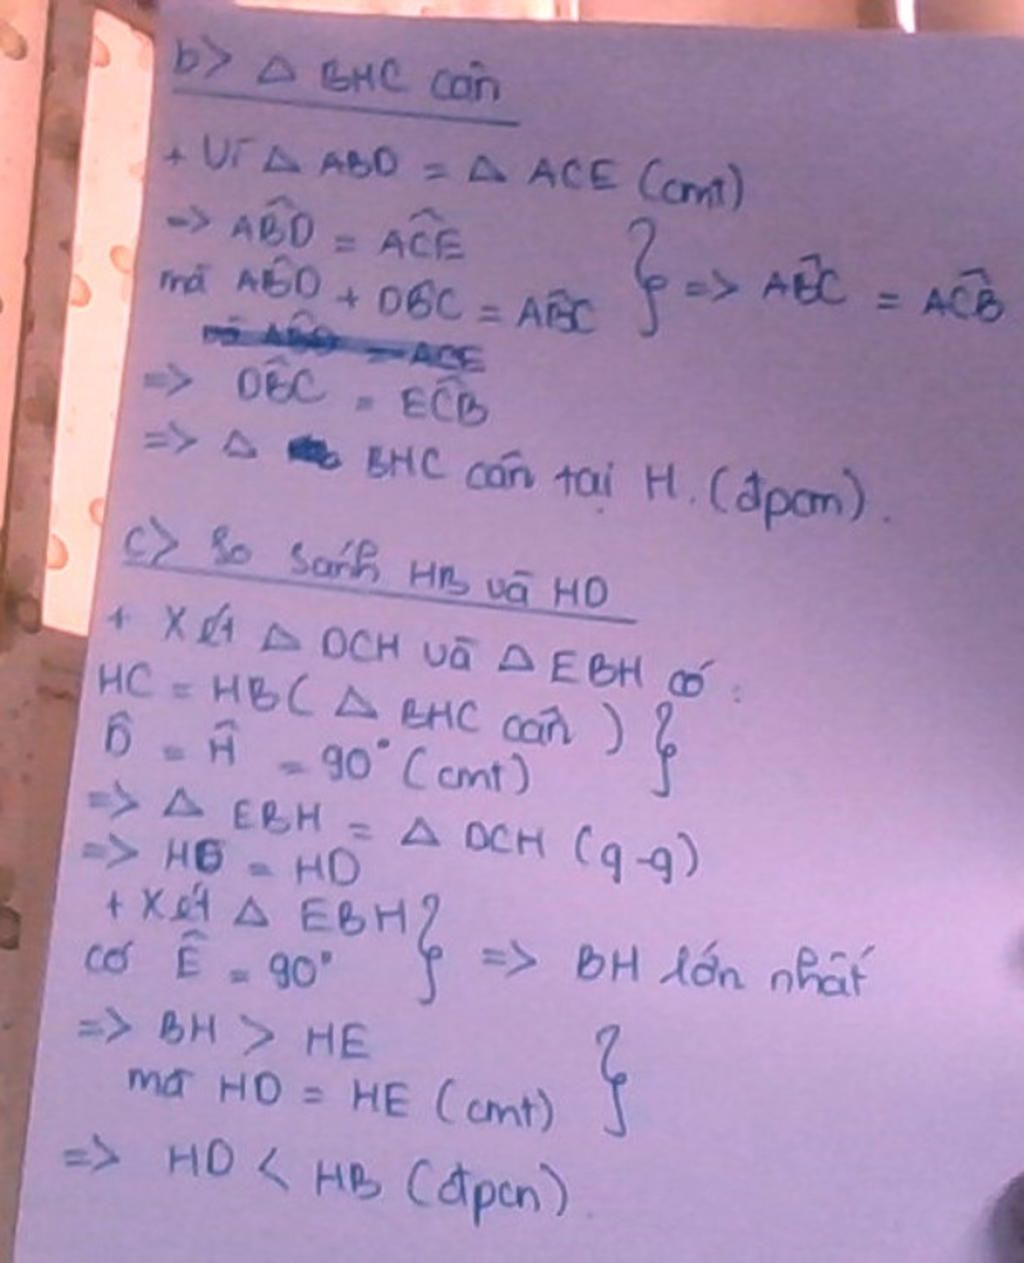 b> △ BHC cân
+ Vì △ ABD = △ ACE (cmt)
=> ABD̂ = ACÊ
mà ABD̂ + DBĈ = ABĈ } => ABĈ = ACB̂
=> DBĈ = ECB̂
=> △ BHC cân tại H. (đpcm).
c> So sánh HB và HD
+ Xét △ DCH và △ EBH có :
HC = HB ( △ BHC cân ) }
D̂ = Ĥ = 90° (cmt)
=> △ EBH = △ DCH (g-g)
=> HE = HD
+ Xét △ EBH }
có Ê = 90° => BH lớn nhất
=> BH > HE }
mà HD = HE (cmt)
=> HD < HB (đpcm).